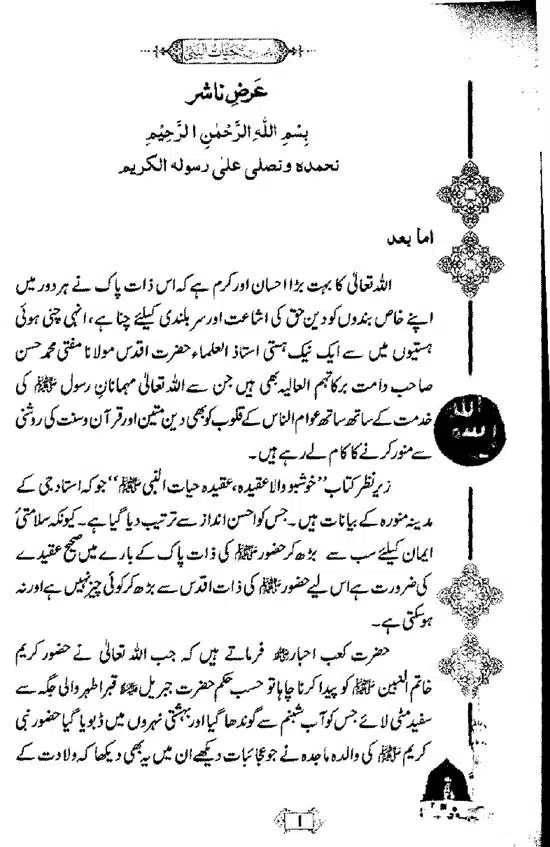 حیات النبی
عَرضِ ناشر
بِسْمِ اللهِ الرَّحْمٰنِ الرَّحِيْمِ
نحمدہ ونصلی علیٰ رسولہ الکریم
اما بعد
اللہ تعالیٰ کا بہت بڑا احسان اور کرم ہے کہ اس ذات پاک نے ہر دور میں
اپنے خاص بندوں کو دین حق کی اشاعت اور سر بلندی کیلئے چنا ہے، انہی چنی ہوئی
ہستیوں میں سے ایک نیک ہستی استاذ العلماء حضرت اقدس مولانا مفتی محمد حسن
صاحب دامت برکاتہم العالیہ بھی ہیں جن سے اللہ تعالیٰ مہمانانِ رسول ﷺ کی
خدمت کے ساتھ ساتھ عوام الناس کے قلوب کو بھی دین متین اور قرآن وسنت کی روشنی
سے منور کرنے کا کام لے رہے ہیں۔
زیر نظر کتاب "خوشبو والا عقیدہ، عقیدہ حیات النبی ﷺ" جو کہ استاد جی کے
مدینہ منورہ کے بیانات ہیں۔ جس کو احسن انداز سے ترتیب دیا گیا ہے۔ کیونکہ سلامتیٔ
ایمان کیلئے سب سے بڑھ کر حضور ﷺ کی ذات پاک کے بارے میں صحیح عقیدے
کی ضرورت ہے اس لیے حضور ﷺ کی ذات اقدس سے بڑھ کر کوئی چیز نہیں ہے اور نہ
ہوسکتی ہے۔
حضرت کعب احبار فرماتے ہیں کہ جب اللہ تعالیٰ نے حضور کریم
خاتم النبین ﷺ کو پیدا کرنا چاہا تو حسب حکم حضرت جبریل قبر اطہر والی جگہ سے
سفید مٹی لائے جس کو آب شبنم سے گوندھا گیا اور بہشتی نہروں میں ڈبویا گیا حضور نبی
کریم ﷺ کی والدہ ماجدہ نے جو عجائبات دیکھے ان میں یہ بھی دیکھا کہ ولادت کے
1